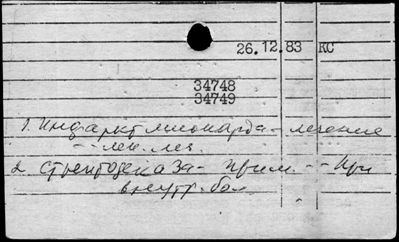 26.12.83 КС
34748
34749
1. Инфаркт миокарда - лечение
- - лек. леч.
2. Стрептодеказа - прим. - - при
внутр. бол.